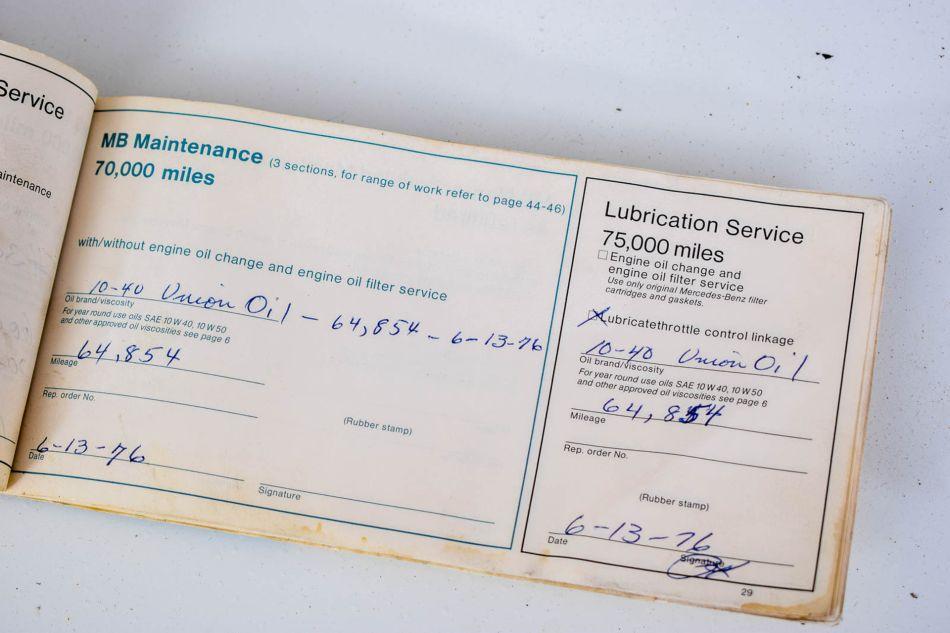 Service
aintenance
MB Maintenance (3 sections, for range of work refer to page 44-46)
70,000 miles
with/without engine oil change and engine oil filter service
10-40 Union Oil - 64,854 - 6-13-76
Oil brand/viscosity
For year round use oils SAE 10 W 40, 10 W 50
and other approved oil viscosities see page 6
64,854
Mileage
Rep. order No.
(Rubber stamp)
6-13-76
Date
Signature
Lubrication Service
75,000 miles
Engine oil change and
engine oil filter service
Use only original Mercedes-Benz filter
cartridges and gaskets.
Lubricatethrottle control linkage
10-40 Union Oil
Oil brand/viscosity
For year round use oils SAE 10 W 40, 10 W 50
and other approved oil viscosities see page 6
64,854
Mileage
Rep. order No.
(Rubber stamp)
6-13-76
Date
Signature
29